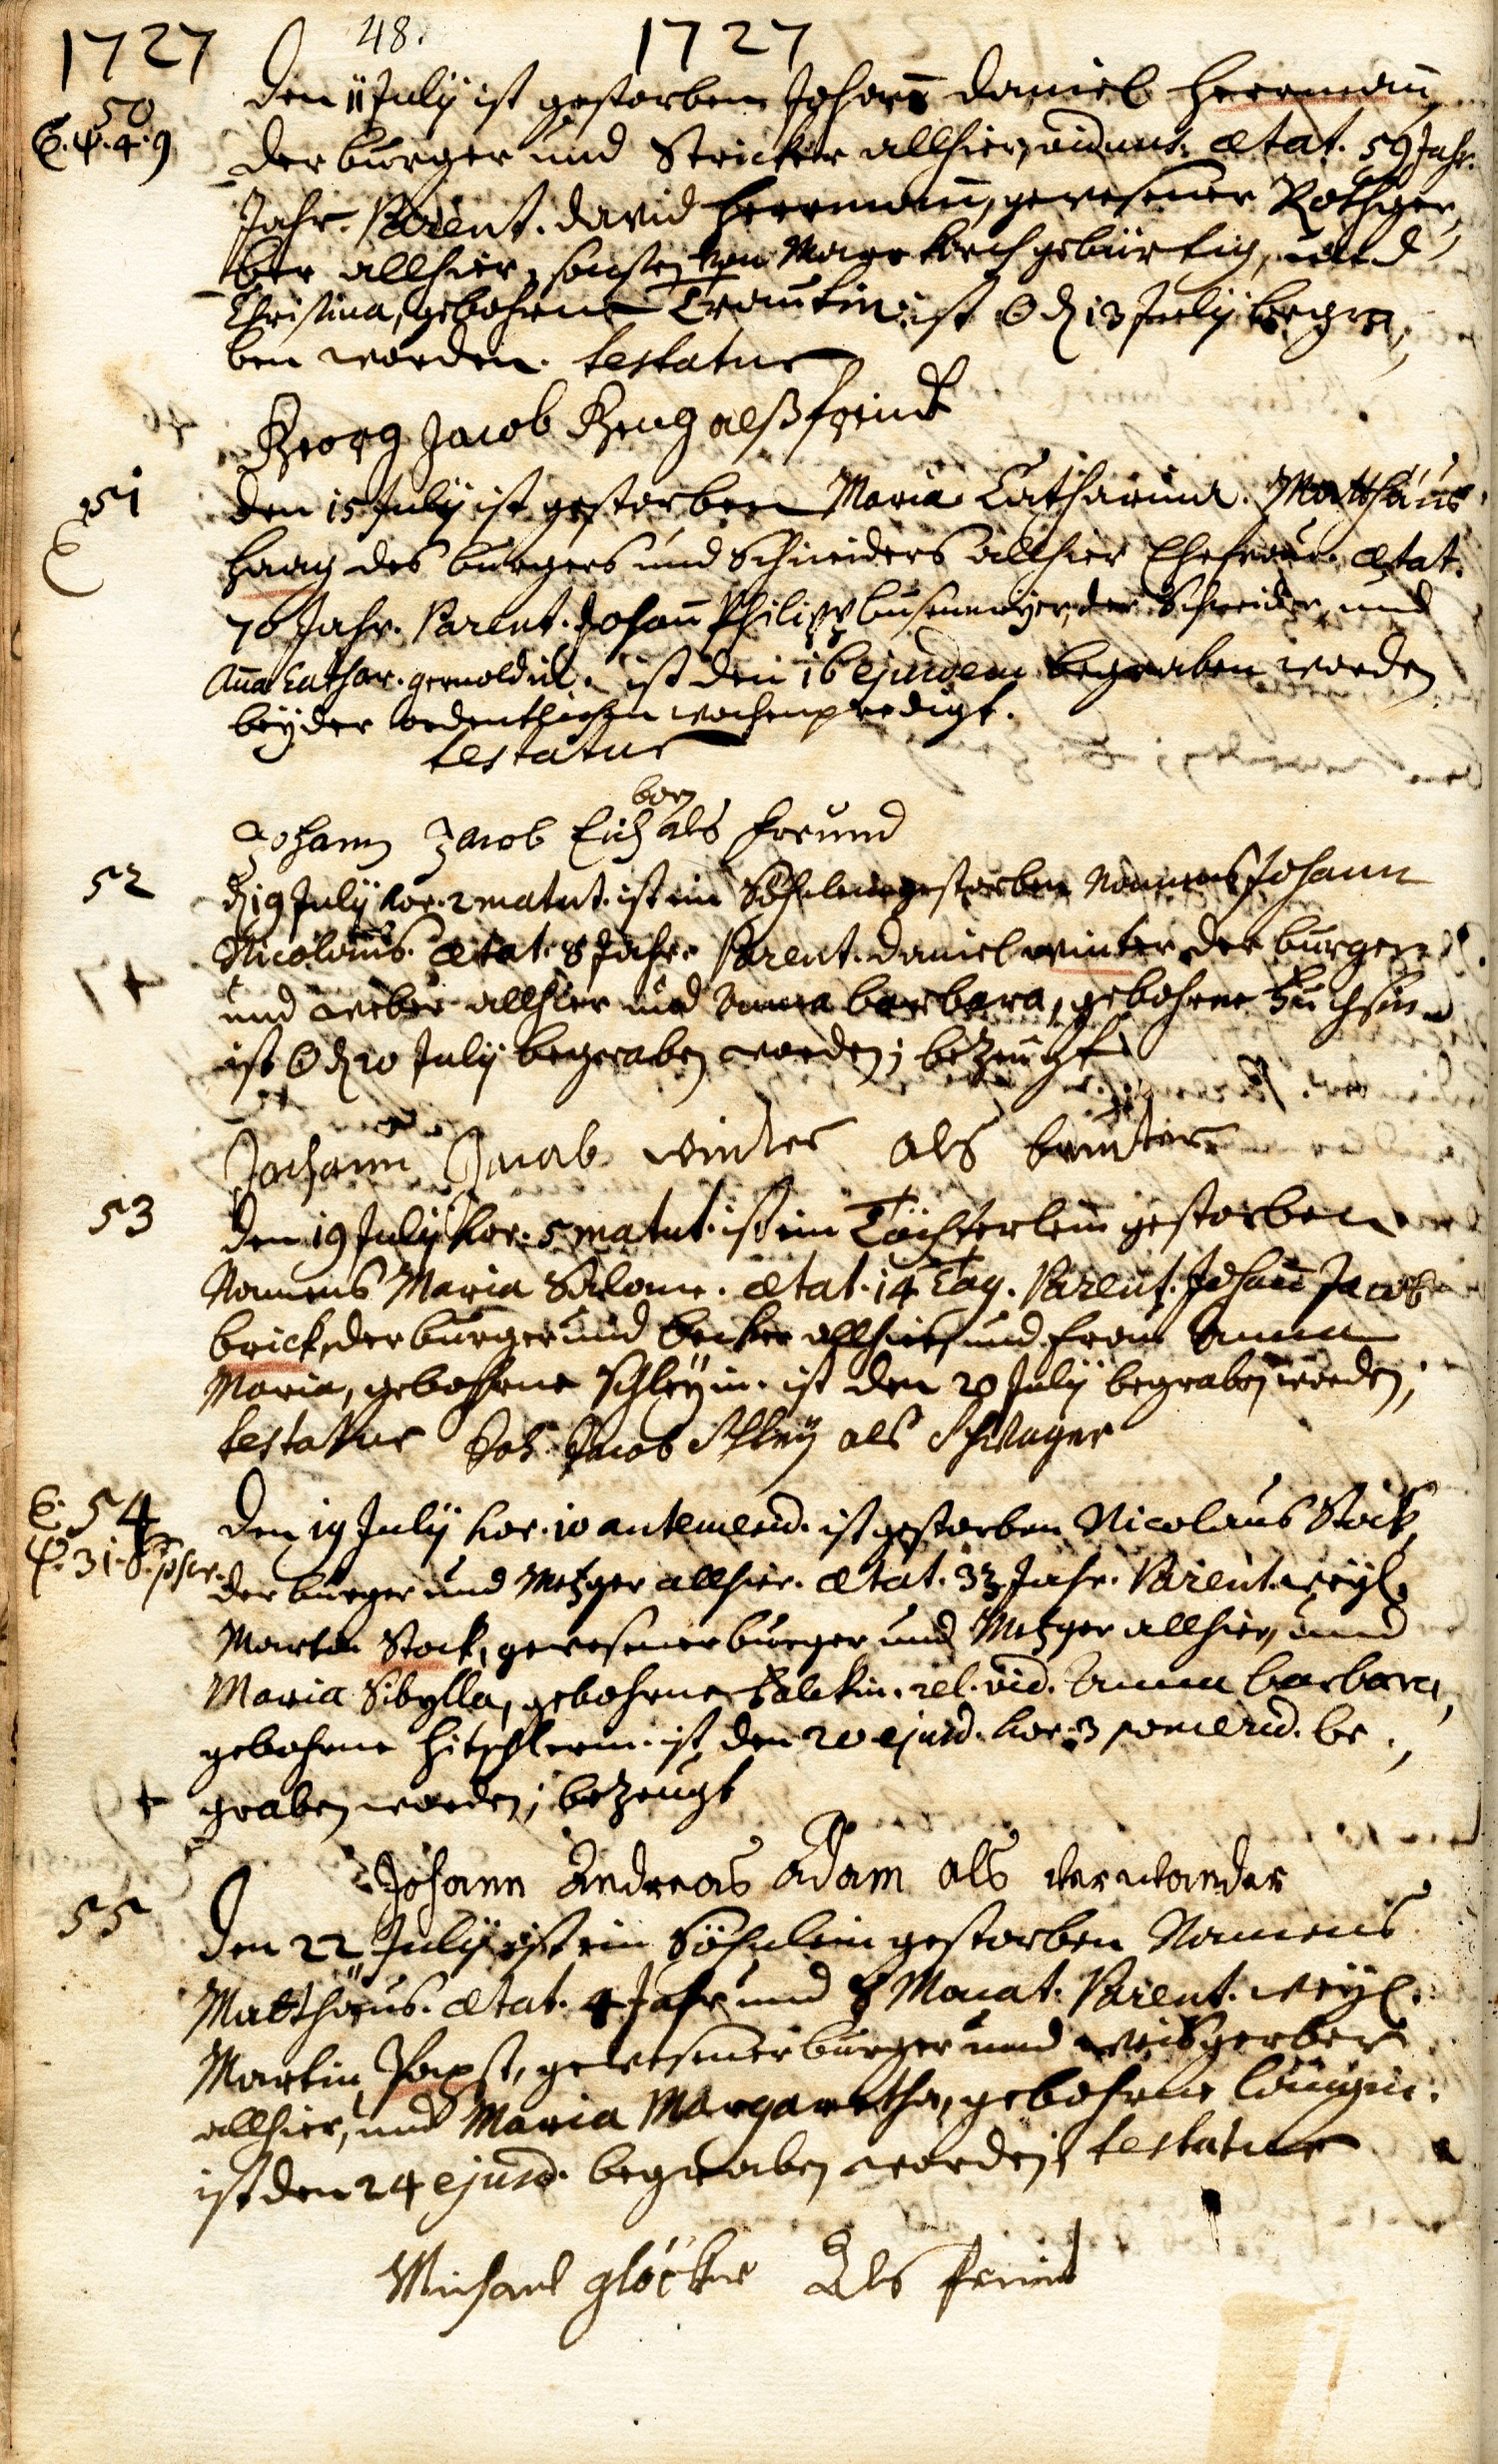 1727 48. 1727
50
E. P. 4. 9
Den 11 July ist gestorben Johann Daniel Herrmann,
der burger und Stricker allhier, viduus. ætat. 59 Jahr.
Jahr. Parent. David Herrmann, gewesener Rothger,
ber allhier, sonsten von Markirch gebürtig, und
Christina, gebohrne Trautin. ist ☉ d. 13 July begra,
ben worden. testatur
Georg Jacob als freind
51
E
Den 15 July ist gestorben Maria Catharina. Matthäus
Haag des burgers und Schneiders allhier Ehefrau. ætat.
70 Jahr. Parent. Johann Philipp busenmeyer, der Schneider, und
Anna Cathar. ist den 16 ejusdem begraben worden
bey der ordentlichen wochenpredigt.
testatur
born
Johann Jacob Eich als freund
52
d. 19 July hor. 2 matut. ist ein Söhnlein gestorben Namens Johann
Nicolaus. ætat. 8 Jahr. Parent. Daniel winter der burger
und weber allhier und Anna barbara, gebohrne Fuchsin.
ist ☉ d. 20 July begraben worden; bezeugt
Johann Jacob winter als bruder
53
Den 19 July hor. 5 matut. ist ein Töchterlein gestorben
Namens Maria Salome. ætat. 14 Tag. Parent. Johann Jacob
brick, der burger und becker allhier, und frau Anna
Maria, gebohrne Schleyin. ist den 20 July begraben worden;
testatur Joh. Jacob Schley als Schwager
E. 54
P. 31.
Den 19 July hor. 10 antemerid. ist gestorben Nicolaus Stock,
der burger und Metzger allhier. ætat. 33 Jahr. Parent. weyl.
Martin Stock, gewesener burger und Metzger allhier, und
Maria Sibylla, gebohrne rel. vid. Anna barbara,
gebohrne Hitschlerin. ist den 20 ejusd. hor. 3 pomerid. be,
graben worden; bezeugt
Johann Andreas Adam als verwander
55
Den 22 July ist ein Söhnlein gestorben Namens
Matthäus. ætat. 4 Jahr und 8 Monat. Parent. weyl.
Martin Papst, gewesener burger und weisgerber
allhier, und Maria Margaretha, gebohrne
ist den 24 ejusd. begraben worden; testatur
Michael glöcker Als freind